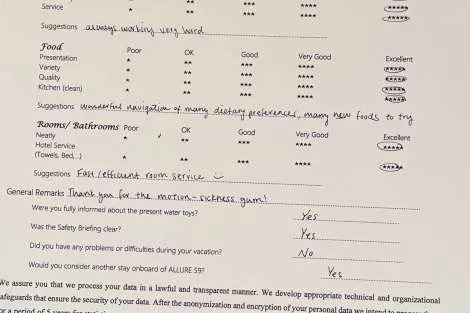 Service * ** *** **** *****
* ** *** **** *****
Suggestions always working very hard
Food Poor OK Good Very Good Excellent
Presentation * ** *** **** *****
Variety * ** *** **** *****
Quality * ** *** **** *****
Kitchen (clean) * ** *** **** *****
Suggestions wonderful navigation of many dietary preferences, many new foods to try
Rooms/ Bathrooms Poor OK Good Very Good Excellent
Neatly ** *** **** *****
Hotel Service
(Towels, Bed,..) * ** *** **** *****
Suggestions Fast/efficient room service ☺
General Remarks Thank you for the motion-sickness gum!
Were you fully informed about the present water toys? Yes
Was the Safety Briefing clear? Yes
Did you have any problems or difficulties during your vacation? No
Would you consider another stay onboard of ALLURE 59? Yes
We assure you that we process your data in a lawful and transparent manner. We develop appropriate technical and organizational
safeguards that ensure the security of your data. After the anonymization and encryption of your personal data we intend to
or a period of 5 years for